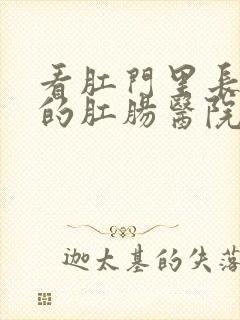 看肛門里長
的肛腸醫院
迦太基的失落